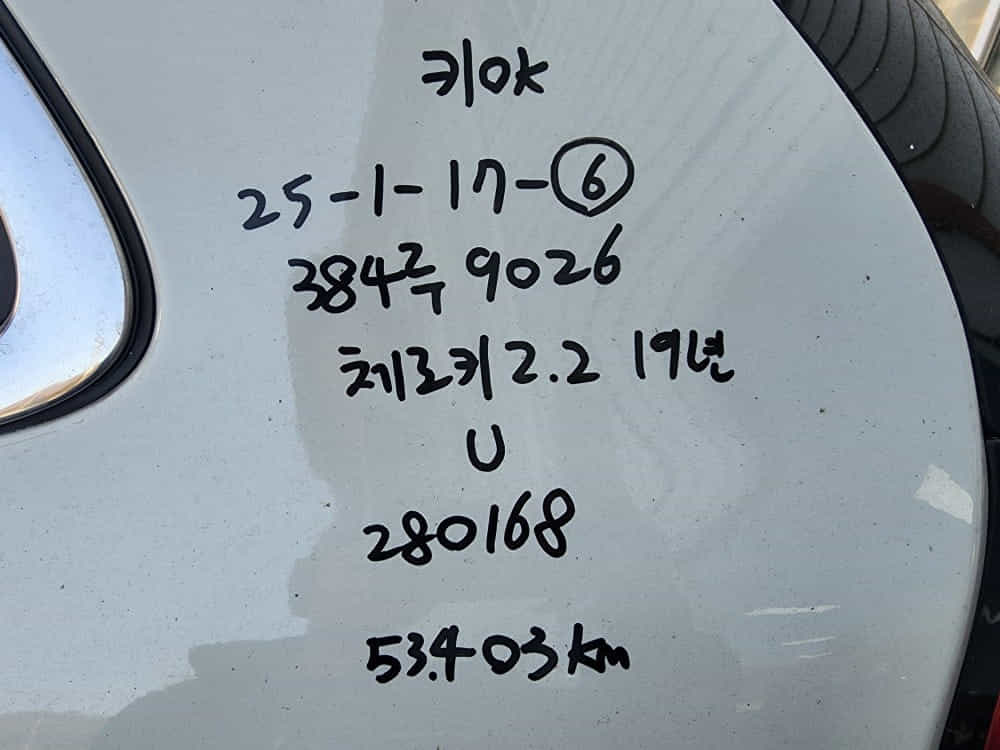 키OK
25-1-17-⑥
384루 9026
체로키 2.2 19년
U
280168
53.403km